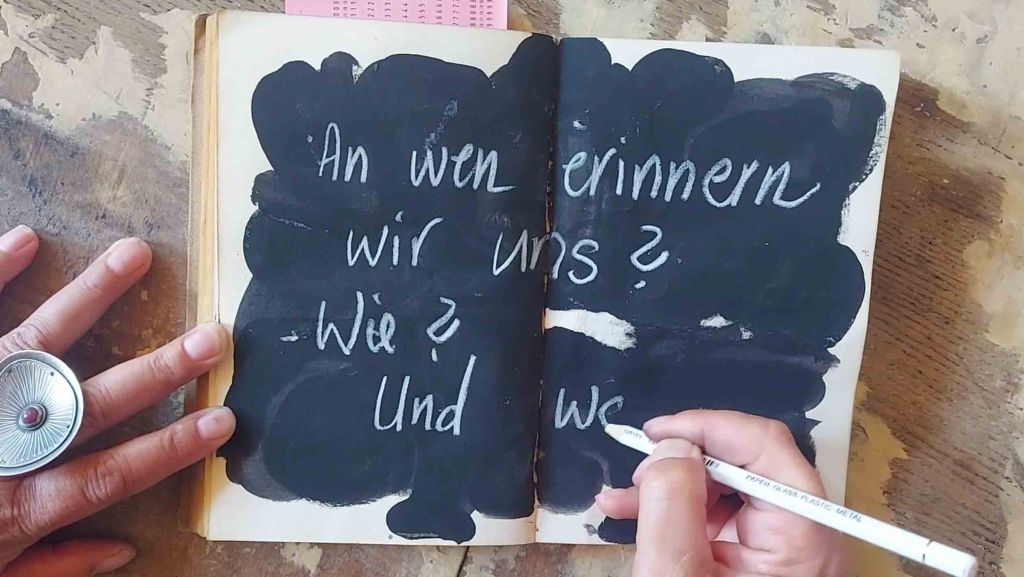 An wen erinnern
wir uns?
Wie?
Und we
PAPER-GLASS-PLASTIC-METAL